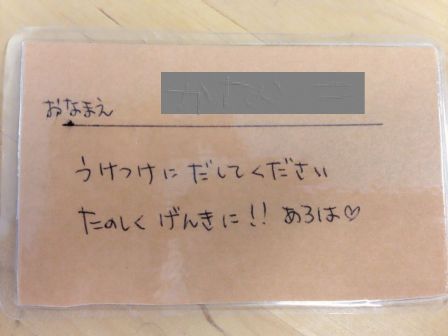 おなまえ
うけつけに だしてください
たのしく げんきに!! あろは♡